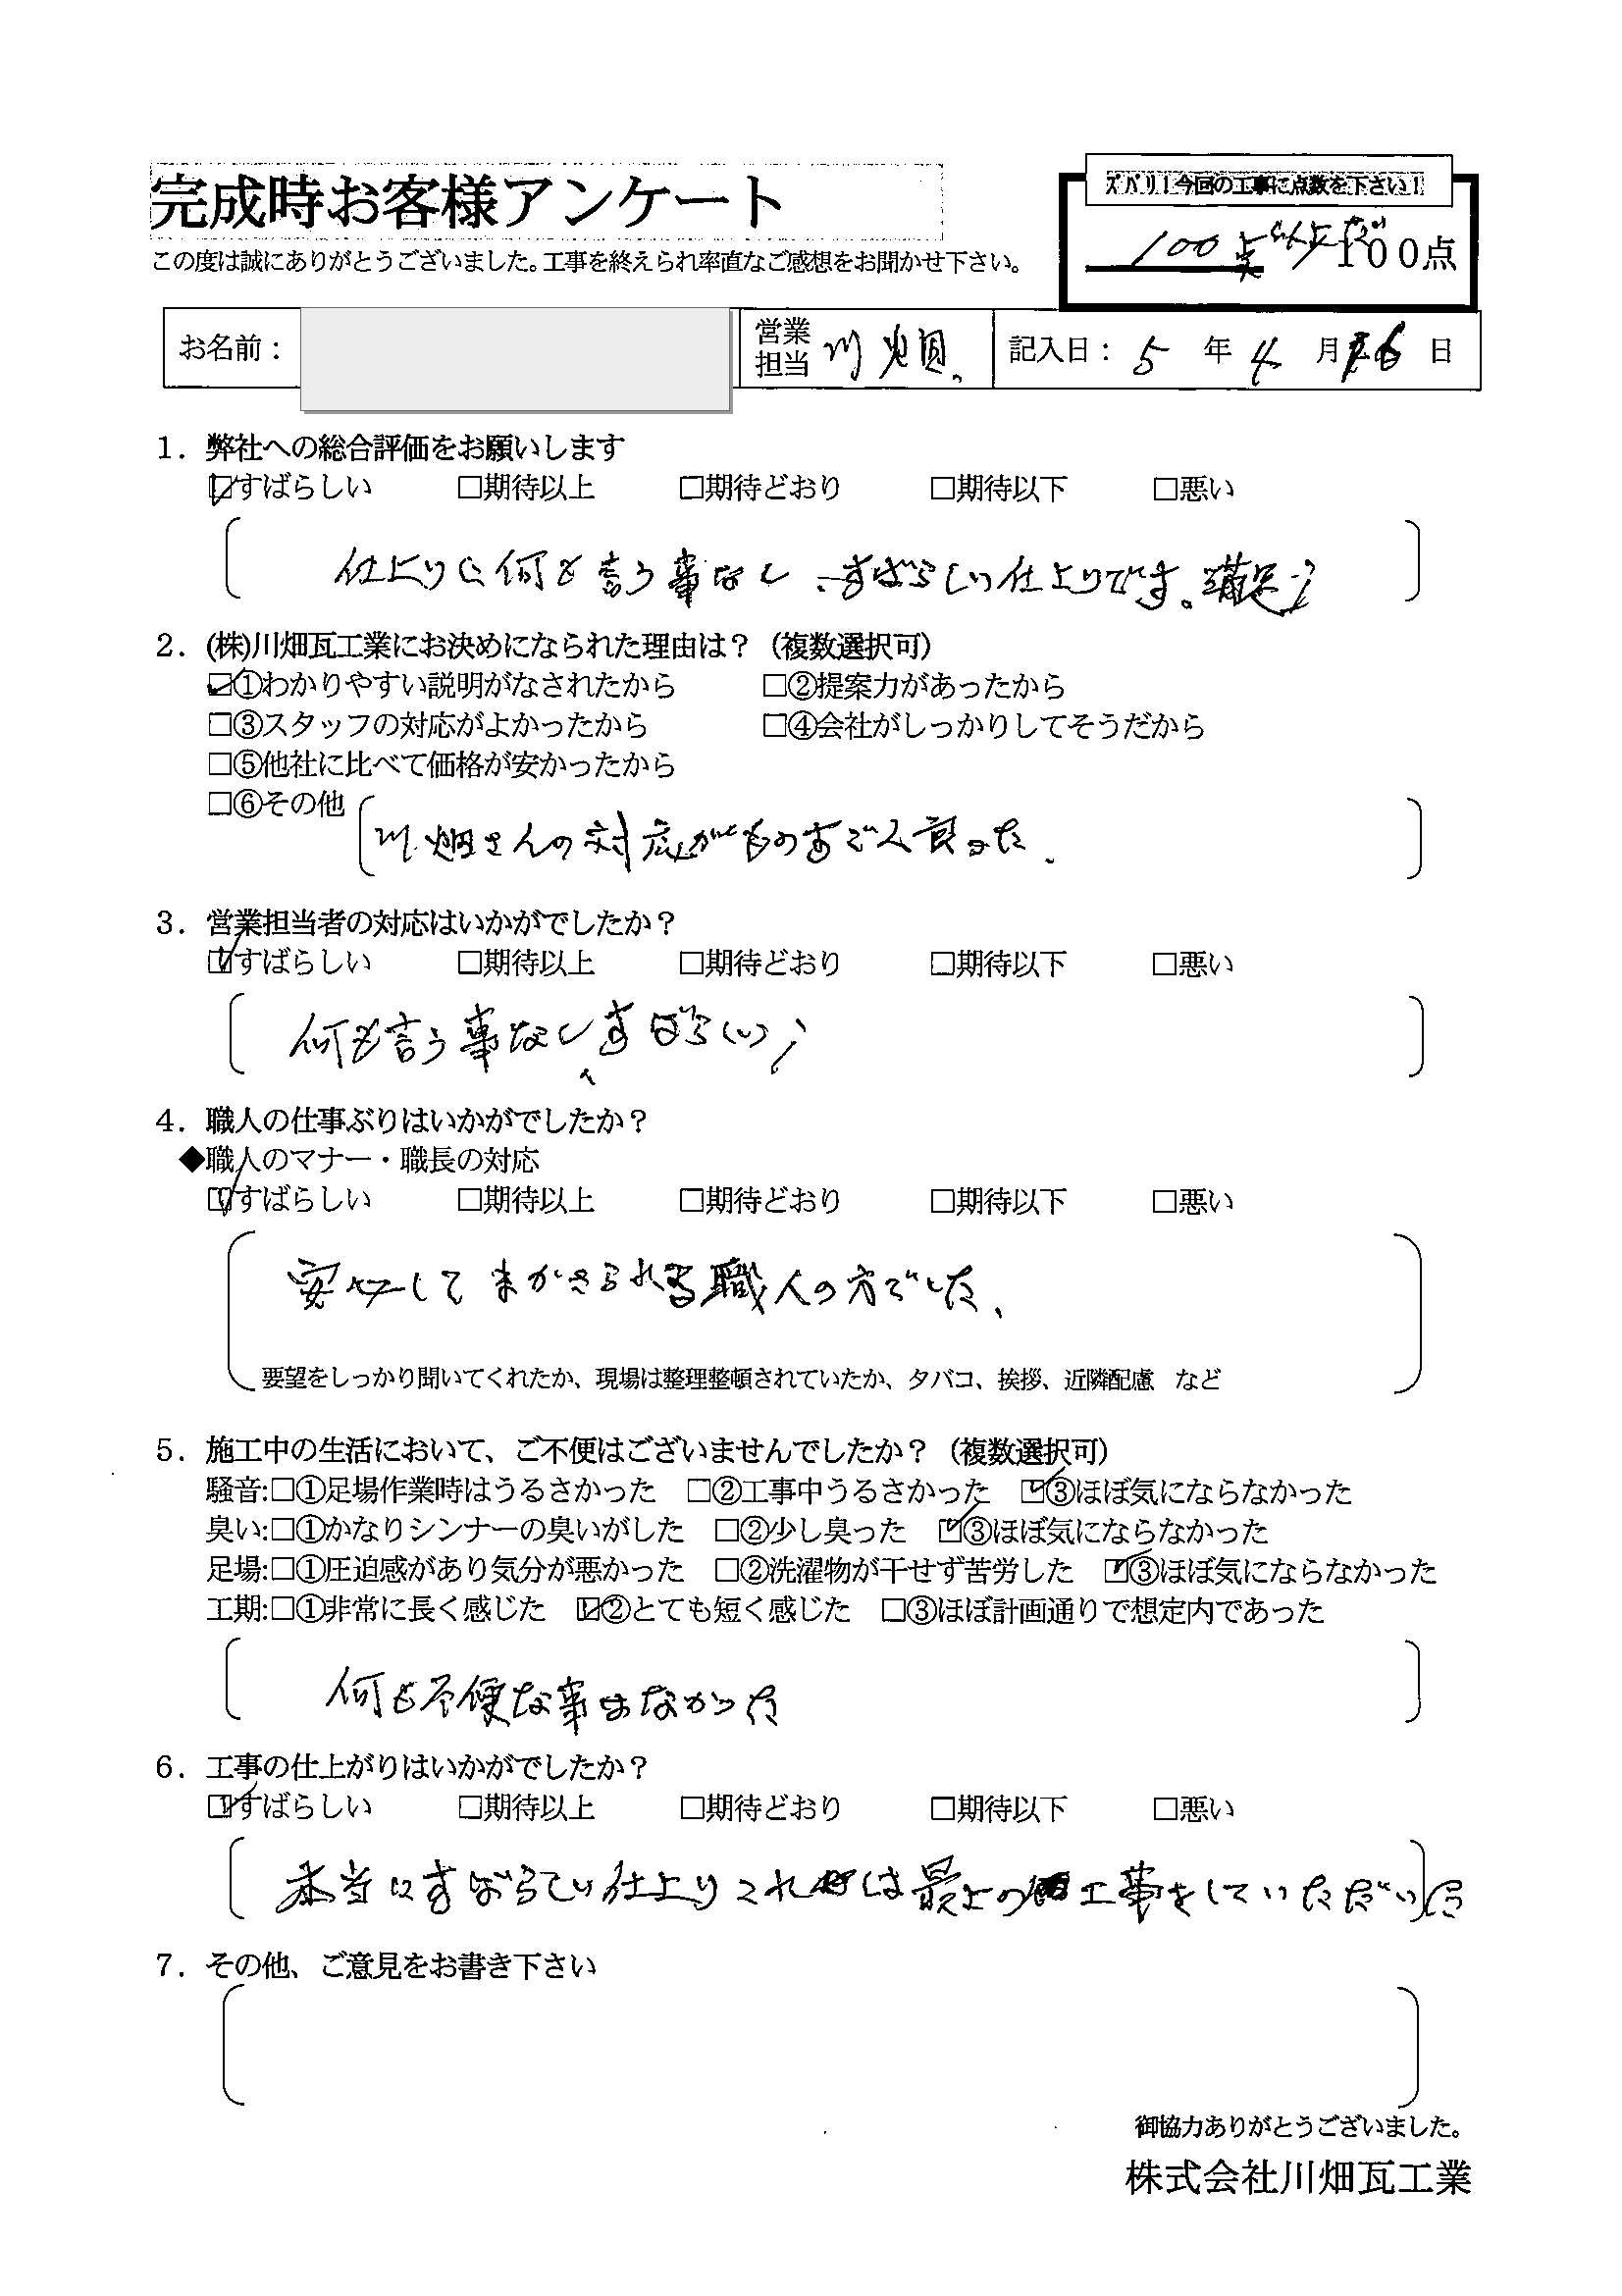 完成時お客様アンケート
この度は誠にありがとうございました。工事を終えられ率直なご感想をお聞かせ下さい。
ズバリ！今回の工事に点数を下さい！
100点以上だ 100点
お名前：
営業担当 川畑.
記入日： 5 年 4 月 16 日
1．弊社への総合評価をお願いします
☑すばらしい □期待以上 □期待どおり □期待以下 □悪い
仕上りに何も言う事なし、すばらしい仕上りです。満足！
2．(株)川畑瓦工業にお決めになられた理由は？（複数選択可）
☑①わかりやすい説明がなされたから □②提案力があったから
□③スタッフの対応がよかったから □④会社がしっかりしてそうだから
□⑤他社に比べて価格が安かったから
□⑥その他
川畑さんの対応がものすごく良った.
3．営業担当者の対応はいかがでしたか？
☑すばらしい □期待以上 □期待どおり □期待以下 □悪い
何も言う事なし、すばらしい！
4．職人の仕事ぶりはいかがでしたか？
◆職人のマナー・職長の対応
☑すばらしい □期待以上 □期待どおり □期待以下 □悪い
安心してまかさられる職人の方でした、
要望をしっかり聞いてくれたか、現場は整理整頓されていたか、タバコ、挨拶、近隣配慮 など
5．施工中の生活において、ご不便はございませんでしたか？（複数選択可）
騒音:□①足場作業時はうるさかった □②工事中うるさかった ☑③ほぼ気にならなかった
臭い:□①かなりシンナーの臭いがした □②少し臭った ☑③ほぼ気にならなかった
足場:□①圧迫感があり気分が悪かった □②洗濯物が干せず苦労した ☑③ほぼ気にならなかった
工期:□①非常に長く感じた ☑②とても短く感じた □③ほぼ計画通りで想定内であった
何も不便な事はなかった
6．工事の仕上がりはいかがでしたか？
☑すばらしい □期待以上 □期待どおり □期待以下 □悪い
本当にすばらしい仕上りこれは最上の工事をしていただいた
7．その他、ご意見をお書き下さい
御協力ありがとうございました。
株式会社川畑瓦工業